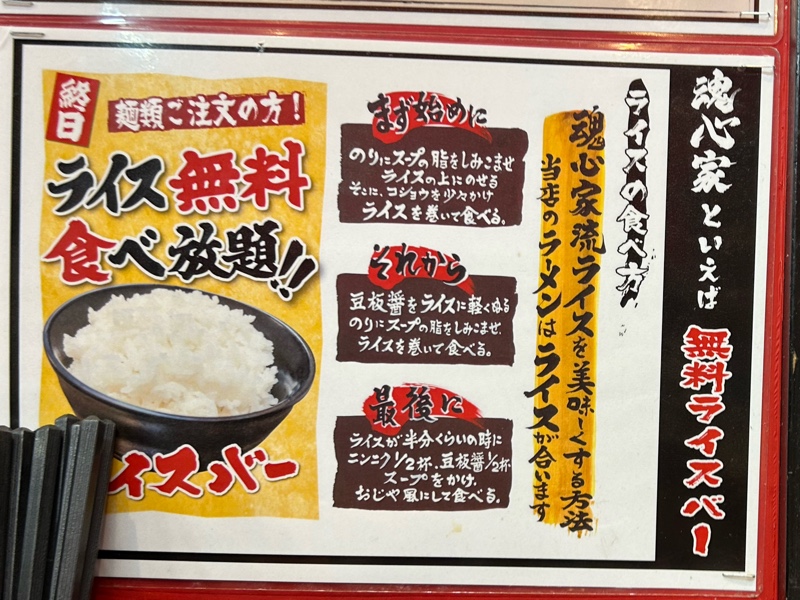 魂心家といえば 無料ライスバー
ライスの食べ方
魂心家流ライスを美味しくする方法
当店のラーメンはライスが合います
まず始めに
のりにスープの脂をしみこませ
ライスの上にのせる
そこに、コショウを少々かけ
ライスを巻いて食べる。
それから
豆板醤をライスに軽くぬる
のりにスープの脂をしみこませ、
ライスを巻いて食べる。
最後に
ライスが半分くらいの時に
ニンニク1/2杯、豆板醤1/2杯
スープをかけ、
おじや風にして食べる。
終日
麺類ご注文の方!
ライス無料
食べ放題!!
イスバー